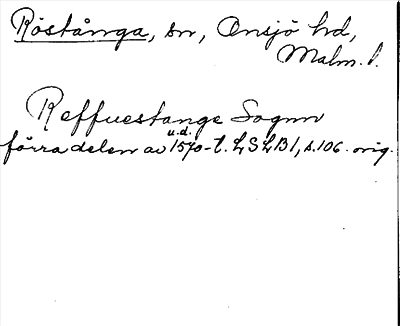 Röstånga, sn, Onsjö hd,
Malm. l.
Reffuestange Sognn
u.d.
förra delen av 1570-t. LSLB1, s. 106. orig.